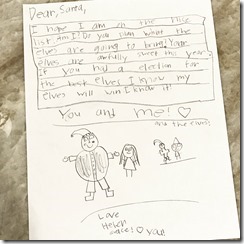 Dear, Santa,
I hope I am on the nice
list. Am I? Do you know what the
elves are going to bring? Your
elves are awfully sweet this year.
if you had a election for
the best elves I know my
elves will win I know it!
You and me! ♡
and the elves!
Love
Helen
♡ you!